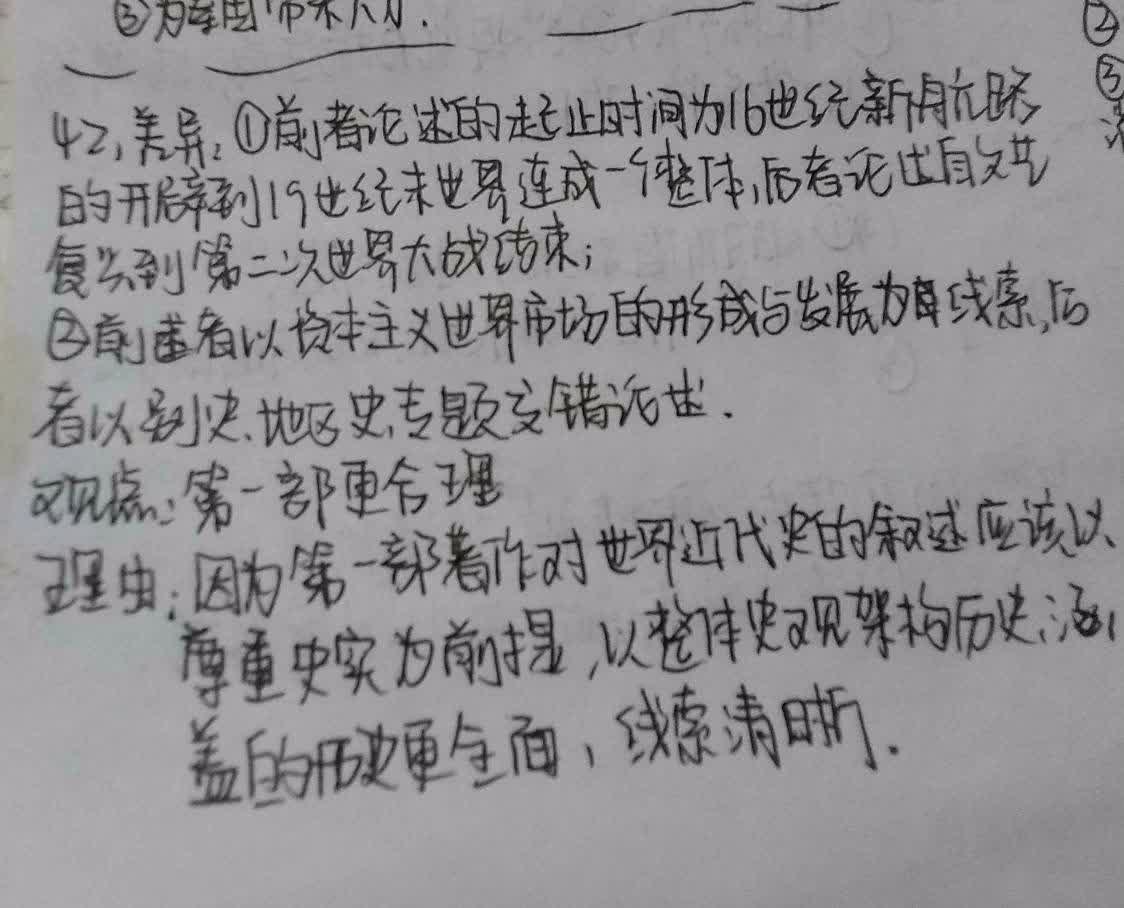 ③为
42,差异:①前者论述的起止时间为16世纪新航路
的开辟到19世纪末世界连成一个整体,后者论述自文艺
复兴到第二次世界大战结束;
②前者以资本主义世界市场的形成与发展为线索,后
者以国别史、地区史、专题交错论述.
观点:第一部更合理
理由:因为第一部著作对世界近代史的叙述应该以
尊重史实为前提,以整体史观架构历史,涵
盖的历史更全面,线索清晰.
②
③